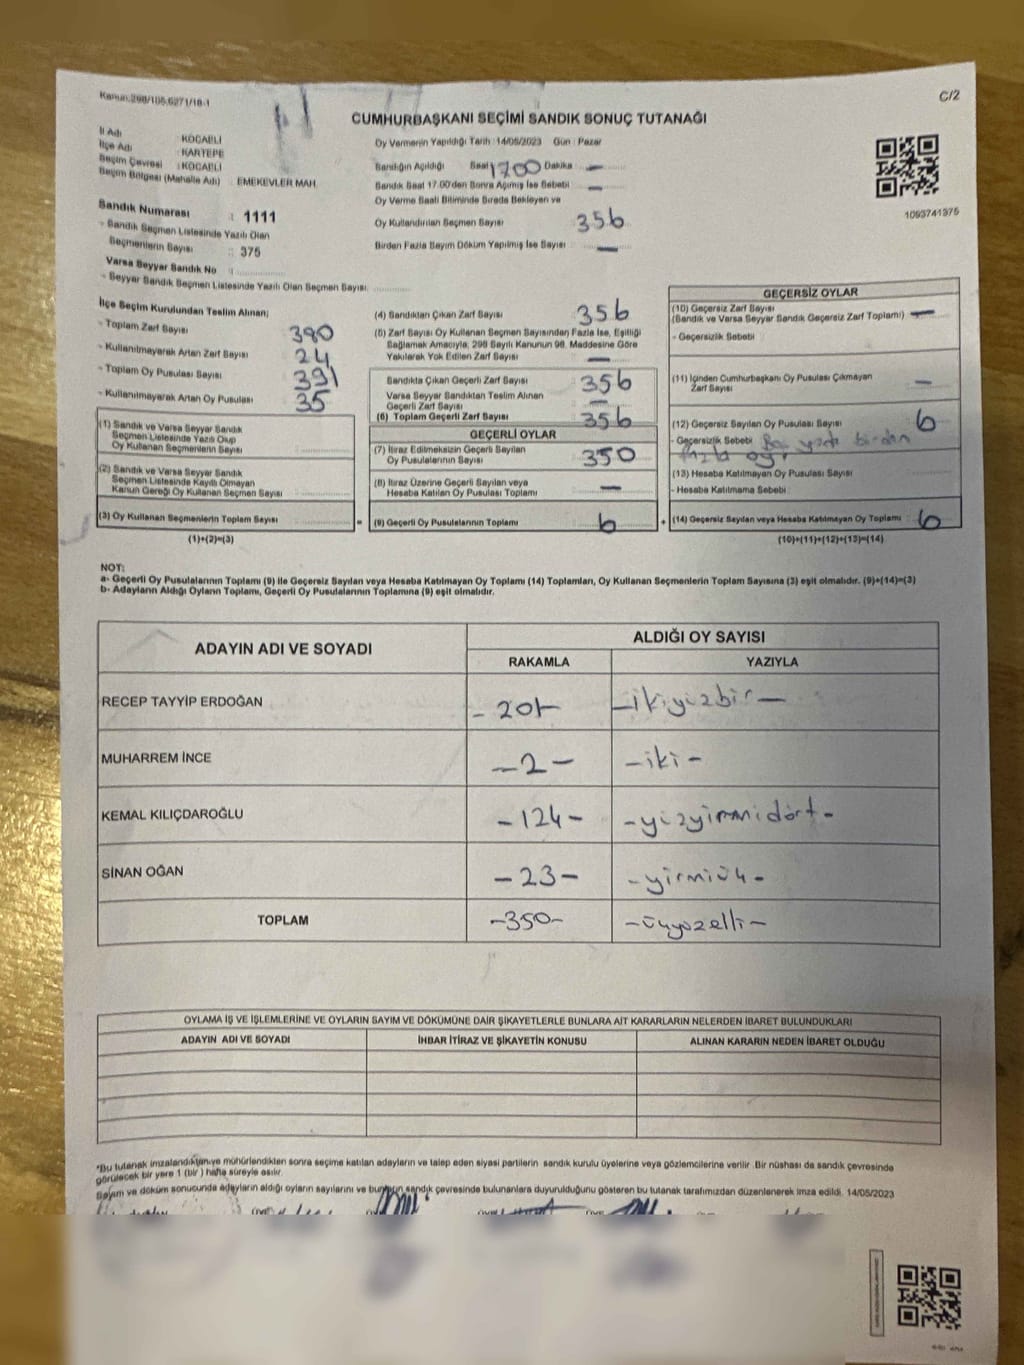 Kanun:298/105,6271/18-1
C/2
CUMHURBAŞKANI SEÇİMİ SANDIK SONUÇ TUTANAĞI
İl Adı : KOCAELİ
İlçe Adı : KARTEPE
Seçim Çevresi : KOCAELİ
Seçim Bölgesi (Mahalle Adı) : EMEKEVLER MAH.
Sandık Numarası : 1111
- Sandık Seçmen Listesinde Yazılı Olan
Seçmenlerin Sayısı : 375
Varsa Seyyar Sandık No :
- Seyyar Sandık Seçmen Listesinde Yazılı Olan Seçmen Sayısı:
Oy Vermenin Yapıldığı Tarih :14/05/2023 Gün : Pazar
Sandığın Açıldığı Saat 1700 Dakika : —
Sandık Saat 17.00'den Sonra Açılmış İse Sebebi : —
Oy Verme Saati Bitiminde Sırada Bekleyen ve
Oy Kullandırılan Seçmen Sayısı : 356
Birden Fazla Sayım Döküm Yapılmış İse Sayısı : —
1093741975
İlçe Seçim Kurulundan Teslim Alınan;
- Toplam Zarf Sayısı : 380
- Kullanılmayarak Artan Zarf Sayısı : 24
- Toplam Oy Pusulası Sayısı : 391
- Kullanılmayarak Artan Oy Pusulası : 35
(1) Sandık ve Varsa Seyyar Sandık
Seçmen Listesinde Yazılı Olup
Oy Kullanan Seçmenlerin Sayısı :
(2) Sandık ve Varsa Seyyar Sandık
Seçmen Listesinde Kayıtlı Olmayan
Kanun Gereği Oy Kullanan Seçmen Sayısı :
(3) Oy Kullanan Seçmenlerin Toplam Sayısı :
(1)+(2)=(3)
(4) Sandıktan Çıkan Zarf Sayısı : 356
(5) Zarf Sayısı Oy Kullanan Seçmen Sayısından Fazla İse, Eşitliği
Sağlamak Amacıyla, 298 Sayılı Kanunun 98. Maddesine Göre
Yakılarak Yok Edilen Zarf Sayısı : —
Sandıkta Çıkan Geçerli Zarf Sayısı : 356
Varsa Seyyar Sandıktan Teslim Alınan
Geçerli Zarf Sayısı : —
(6) Toplam Geçerli Zarf Sayısı : 356
GEÇERLİ OYLAR
(7) İtiraz Edilmeksizin Geçerli Sayılan
Oy Pusulalarının Sayısı : 350
(8) İtiraz Üzerine Geçerli Sayılan veya
Hesaba Katılan Oy Pusulası Toplamı : —
= (9) Geçerli Oy Pusulalarının Toplamı : 6 +
GEÇERSİZ OYLAR
(10) Geçersiz Zarf Sayısı
(Sandık ve Varsa Seyyar Sandık Geçersiz Zarf Toplamı) : —
- Geçersizlik Sebebi :
(11) İçinden Cumhurbaşkanı Oy Pusulası Çıkmayan
Zarf Sayısı : —
(12) Geçersiz Sayılan Oy Pusulası Sayısı : 6
- Geçersizlik Sebebi birden
fazla oy
(13) Hesaba Katılmayan Oy Pusulası Sayısı :
- Hesaba Katılmama Sebebi :
(14) Geçersiz Sayılan veya Hesaba Katılmayan Oy Toplamı : 6
(10)+(11)+(12)+(13)=(14)
NOT:
a- Geçerli Oy Pusulalarının Toplamı (9) ile Geçersiz Sayılan veya Hesaba Katılmayan Oy Toplamı (14) Toplamları, Oy Kullanan Seçmenlerin Toplam Sayısına (3) eşit olmalıdır. (9)+(14)=(3)
b- Adayların Aldığı Oyların Toplamı, Geçerli Oy Pusulalarının Toplamına (9) eşit olmalıdır.
ADAYIN ADI VE SOYADI
ALDIĞI OY SAYISI
RAKAMLA YAZIYLA
RECEP TAYYİP ERDOĞAN - 201- -ikiyüzbir-
MUHARREM İNCE -2- -iki-
KEMAL KILIÇDAROĞLU -124- -yüzyirmidört-
SİNAN OĞAN -23- -yirmiüç-
TOPLAM -350- -üçyüzelli-
OYLAMA İŞ VE İŞLEMLERİNE VE OYLARIN SAYIM VE DÖKÜMÜNE DAİR ŞİKAYETLERLE BUNLARA AİT KARARLARIN NELERDEN İBARET BULUNDUKLARI
ADAYIN ADI VE SOYADI İHBAR İTİRAZ VE ŞİKAYETİN KONUSU ALINAN KARARIN NEDEN İBARET OLDUĞU
*Bu tutanak imzalandıktan ve mühürlendikten sonra seçime katılan adayların ve talep eden siyasi partilerin sandık kurulu üyelerine veya gözlemcilerine verilir. Bir nüshası da sandık çevresinde
görülecek bir yere 1 (bir) hafta süreyle asılır.
Sayım ve döküm sonucunda adayların aldığı oyların sayılarını ve bunların sandık çevresinde bulunanlara duyurulduğunu gösteren bu tutanak tarafımızdan düzenlenerek imza edildi. 14/05/2023